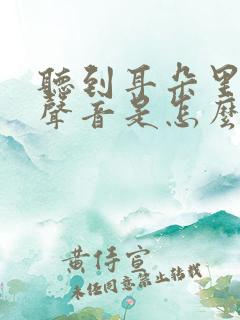 聽到耳朵里
聲音是怎麼
黄侍宣
未经同意禁止转载